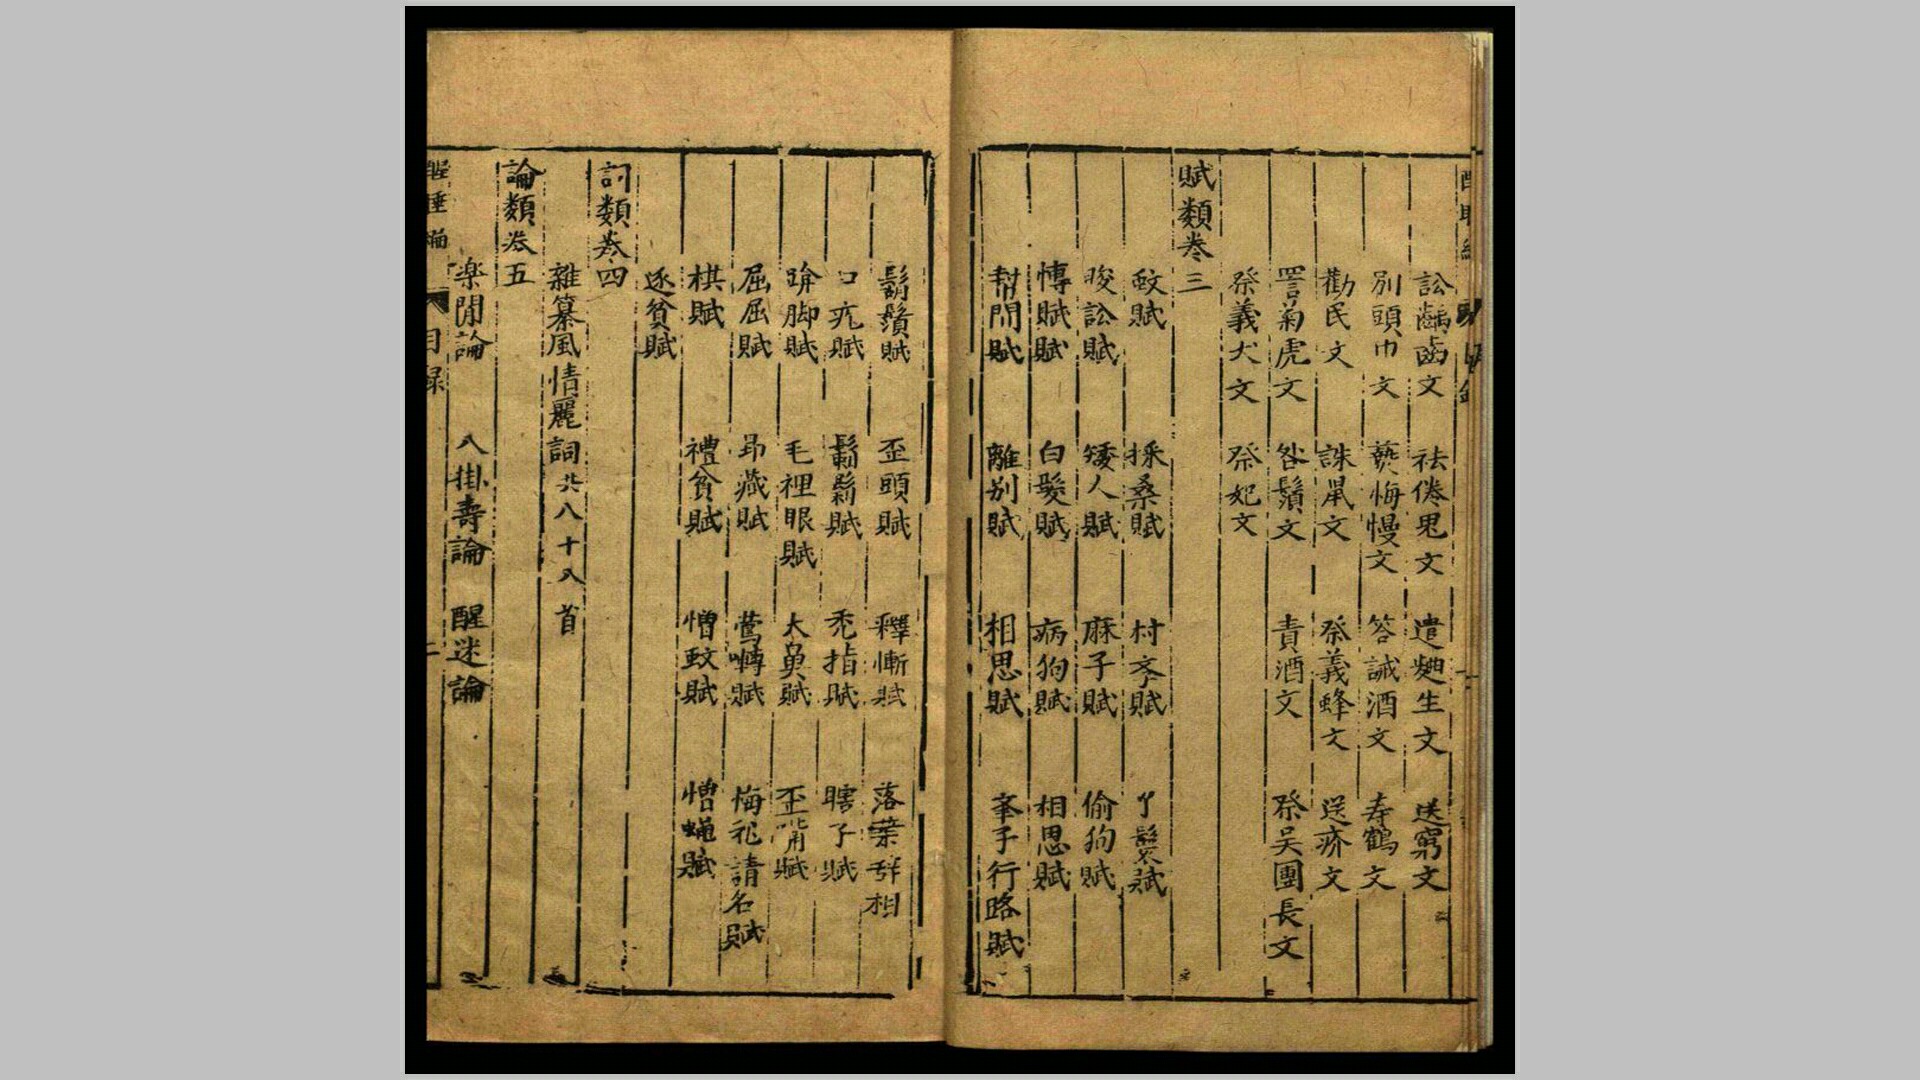 訟齲齒文 祛倦鬼文 遣麯生文 送窮文
別頭巾文 悔慢文 答誡酒文 寿鶴文
勸民文 誅鼠文 祭義蜂文 送疥文
詈菊虎文 咎鬚文 責酒文 祭吴團長文
祭義犬文 祭妃文
賦類卷三
蚊賦 採桑賦 村李賦 丫鬟賦
訟賦 矮人賦 麻子賦 偷狗賦
慱賦賦 白髮賦 病狗賦 相思賦
幇閒賦 離别賦 相思賦 行路賦
鬍鬚賦 歪頭賦 釋慚賦 落葉辞相
口賦 鬅鬎賦 秃指賦 瞎子賦
脚賦 毛裡眼賦 大鼻賦 歪嘴賦
屈屈賦 昻藏賦 鶯囀賦 悔祀請名賦
棋賦 禮貧賦 憎蚊賦 憎蝇賦
逐貧賦
詞類卷四
雜纂風情麗詞共八十八首
論類卷五
楽閒論 八掛壽論 醒迷論
醒睡編 目録 二